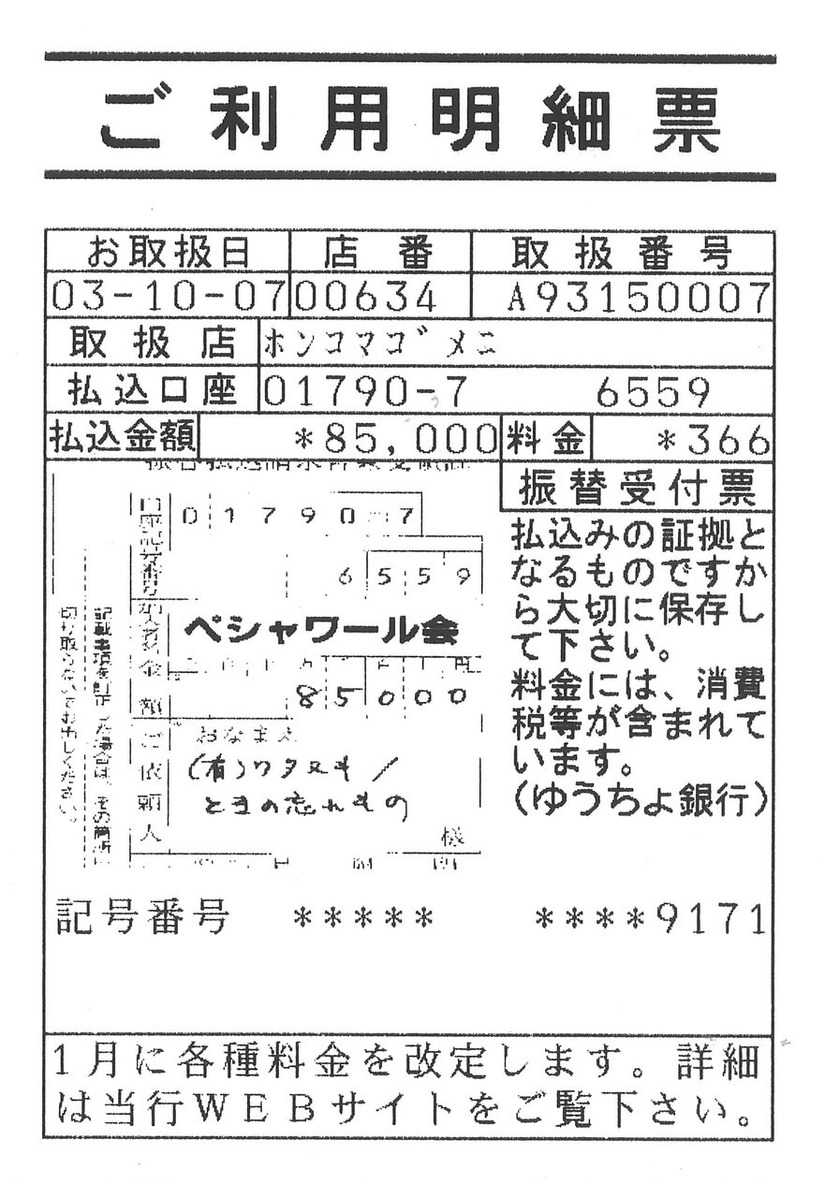 ご利用明細票
お取扱日 店番 取扱番号
03-10-07 00634 A93150007
取扱店 ホンコマゴメニ
払込口座 01790-7 6559
払込金額 *85,000 料金 *366
振替受付票
払込みの証拠と
なるものですか
ら大切に保存し
て下さい。
料金には、消費
税等が含まれて
います。
(ゆうちょ銀行)
口座記号番号
01790 7
6559
加入者名
ペシャワール会
金額
85000
ご依頼人
おなまえ
(有)ワタヌキ/
ときの忘れもの
様
記載事項を訂正した場合は、その箇所に
切り取らないでお出しください。
記号番号 ***** ****9171
1月に各種料金を改定します。詳細
は当行WEBサイトをご覧下さい。